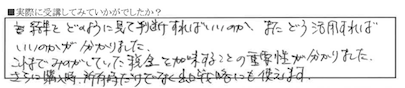 ■実際に受講してみていかがでしたか？
をどのように見て判断すればいいのか、またどう活用すれば
いいのかが分かりました。
これまでみのがしていた税金を加味することの重要性が分かりました。
さらに購入時、所有時だけでなく出口戦略にも使えます。